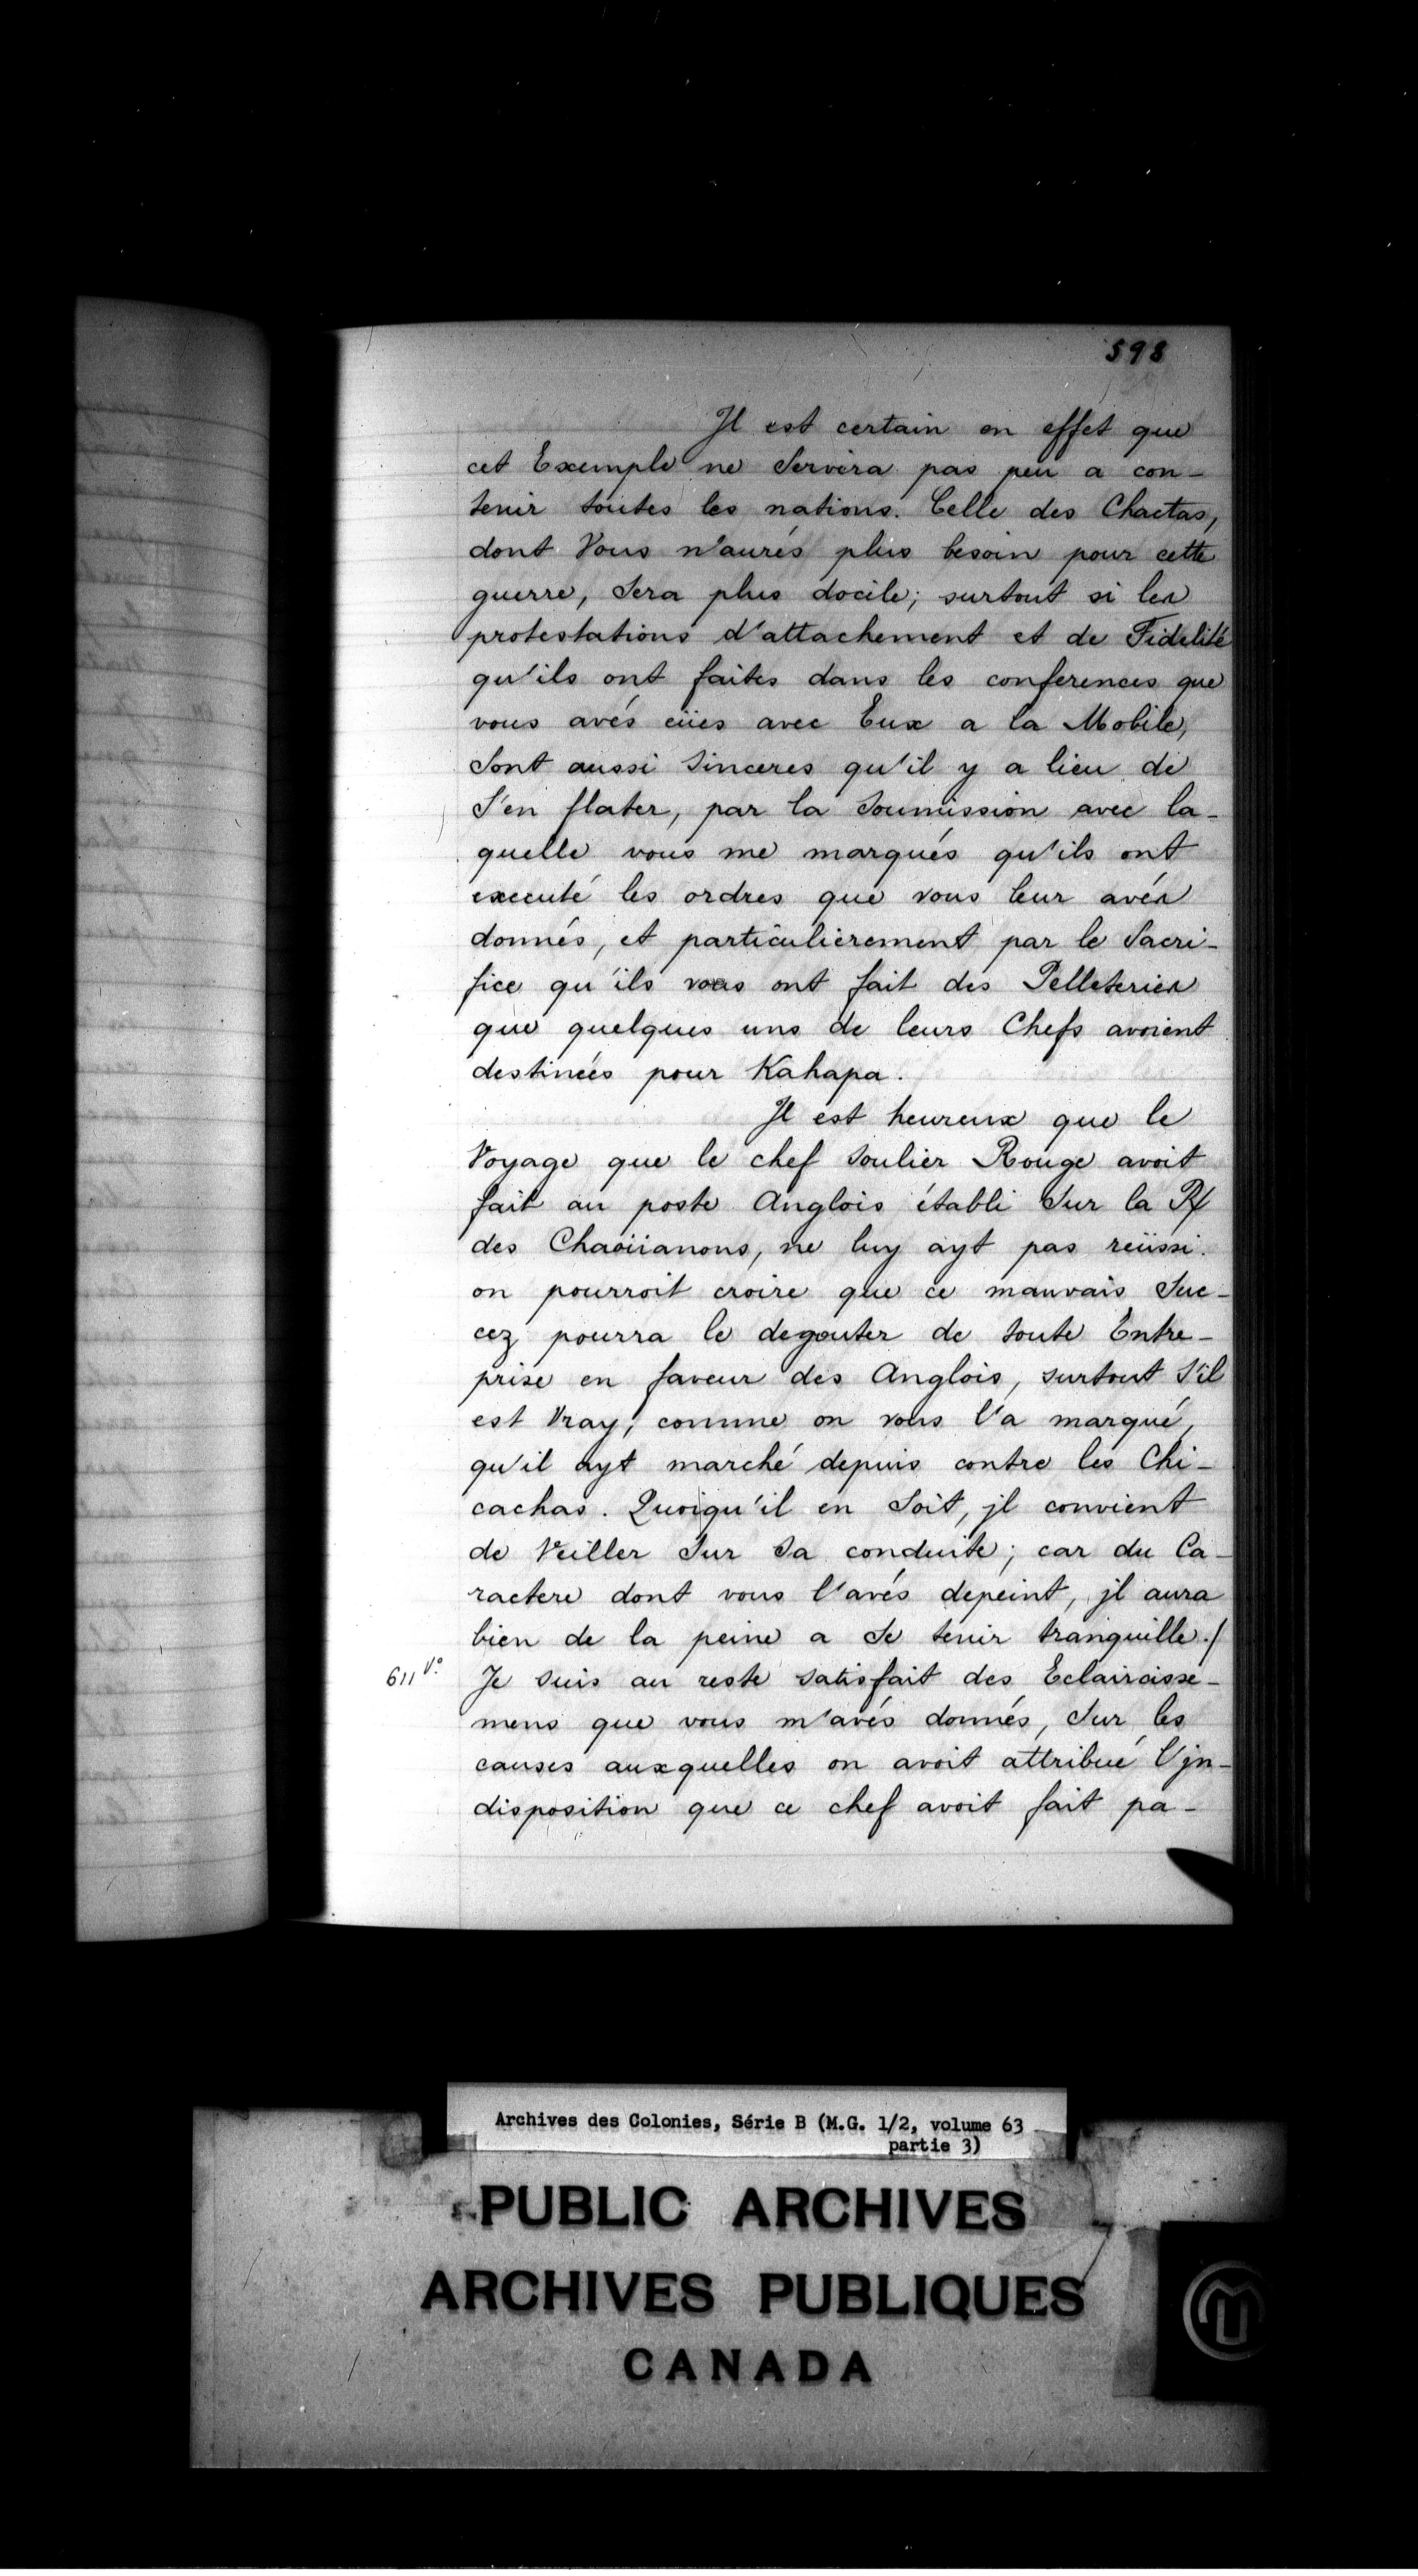 598
Jl est certain en effet que
cet Exemple ne Servira pas peu a con-
tenir toutes les nations. Celle des Chactas,
dont Vous n'aurés plus besoin pour cette
guerre, Sera plus docile; surtout si les
protestations d'attachement et de Fidelité
qu'ils ont faites dans les conferences que
vous avés eües avec Eux a la Mobile,
Sont aussi Sinceres qu'il y a lieu de
S'en flater, par la Soumission avec la-
quelle vous me marqués qu'ils ont
executé les ordres que vous leur avés
donnés, et particulierement par le Sacri-
fice qu'ils vous ont fait des Pelleteries
que quelques uns de leurs Chefs avoient
destinées pour Kahapa.
Jl est heureux que le
Voyage que le chef Soulier Rouge avoit
fait au poste Anglois établi Sur la R/
des Chaoüanons, ne luy ayt pas reüssi.
on pourroit croire que ce mauvais Suc-
cez pourra le degouter de toute Entre-
prise en faveur des Anglois, surtout S'il
est Vray, comme on vous l'a marqué,
qu'il ayt marché depuis contre les Chi-
cachas. Quoiqu'il en Soit, jl convient
de Veiller Sur Sa conduite; car du Ca-
ractere dont vous l'avés depeint, jl aura
bien de la peine a Se tenir tranquille./
611 v.º Je suis au reste satisfait des Eclaircisse-
mens que vous m'avés donnés, Sur les
causes auxquelles on avoit attribué l'jn-
disposition que ce chef avoit fait pa-
Archives des Colonies, Série B (M.G. 1/2, volume 63
partie 3)
PUBLIC ARCHIVES
ARCHIVES PUBLIQUES
CANADA